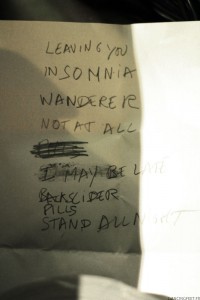 LEAVING YOU
INSOMNIA
WANDERER
NOT AT ALL
I MAY BE LATE
BACKSLIDER
PILLS
STAND ALL NIGHT